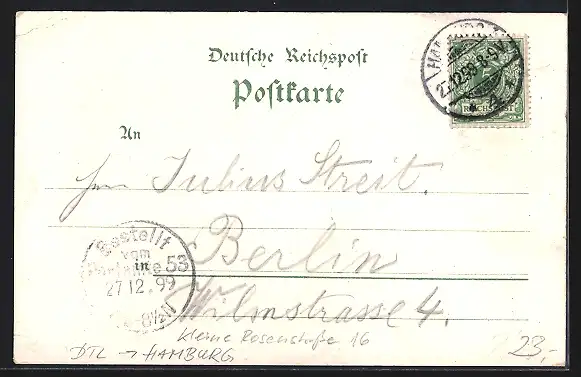 Deutsche Reichspost
Postkarte
HAMBURG
27.12.99. 8-9 V
REICHSPOST
An
Herrn Julius Streit.
Berlin
Wilmstrasse 4.
Bestellt
vom
Postamte 53
in
27 12. 99
8½
kleine Rosenstraße 16
DTL → HAMBURG
23,-